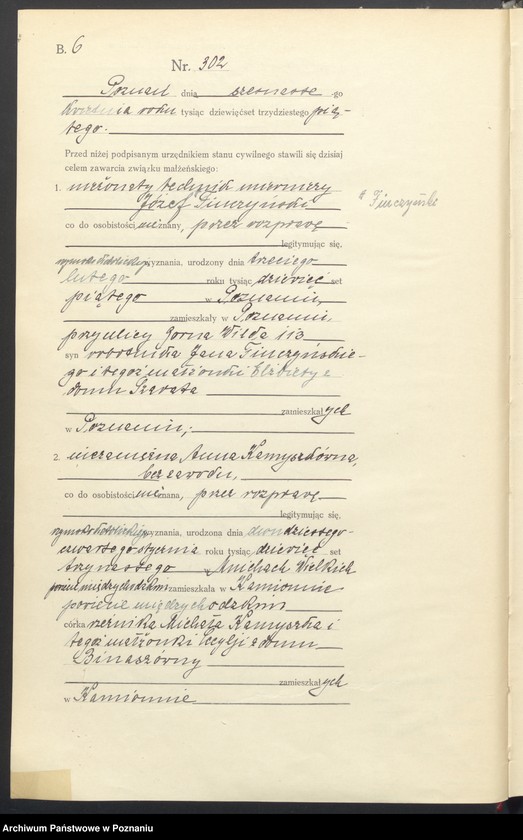 B. 6
Nr. 302
Poznań dnia szesnaste go
kwietnia roku tysiąc dziewięćset trzydziestego pią-
tego.
Przed niżej podpisanym urzędnikiem stanu cywilnego stawili się dzisiaj
celem zawarcia związku małżeńskiego:
1. nieżonaty technik mierniczy
Józef
co do osobistości nieznany, przez rozprawę
legitymując się,
rzymskokatolickiego wyznania, urodzony dnia trzeciego
lutego roku tysiąc dziewięć set
piątego w Poznaniu,
zamieszkały w Poznaniu,
przy ulicy Górna Wilda 113
syn robotnika Jana
go i tegoż małżonki Elżbiety z
domu
zamieszkałych
w Poznaniu;
2. niezamężna Anna Kamyszkówna,
bez zawodu,
co do osobistości nieznana, przez rozprawę
legitymując się,
rzymskokatolickiego wyznania, urodzona dnia dwudziestego-
czwartego stycznia roku tysiąc dziewięć set
trzynastego w Mnichach Wielkich
powiat międzychodzkim zamieszkała w Kamionnie
powiecie międzychodzkim
córka rzeźnika Michała Kamyszka i
tegoż małżonki Cecylji z domu
Binaszówny
zamieszkałych
w Kamionnie
Archiwum Państwowe w Poznaniu